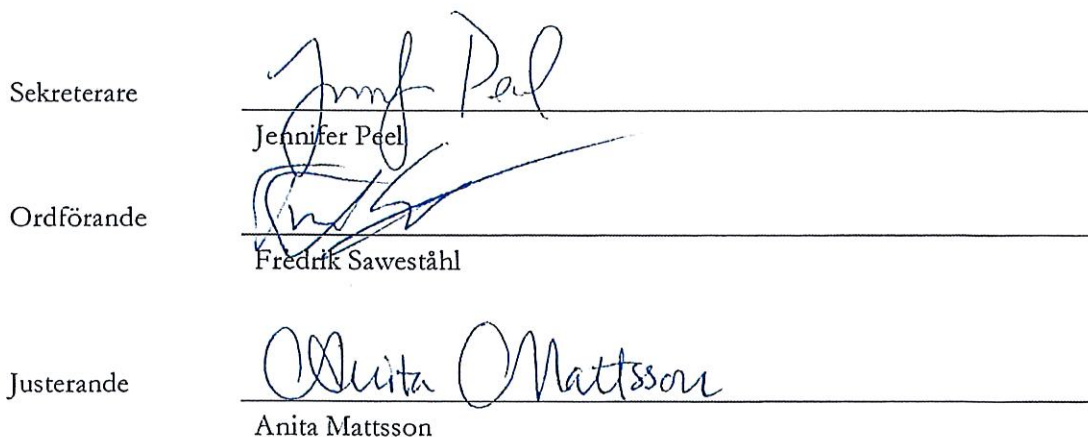 Sekreterare
Jennif Peel
Jennifer Peel
Ordförande
Fredrik Saweståhl
Justerande
Anita Mattsson
Anita Mattsson